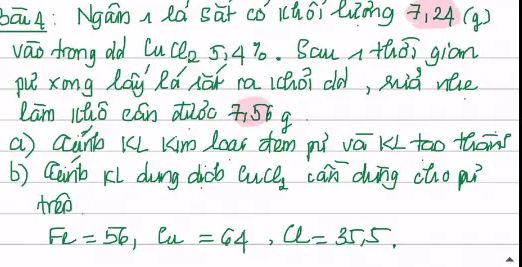 Bài 4: Ngâm 1 lá sắt có khối lượng 7,24 (g)
vào trong dd CuCl2 5,4%. Sau 1 thời gian
pứ xong lấy lá sắt ra khỏi dd, rửa nhẹ
làm khô cân được 7,56 g
a) Tính KL kim loại đem pứ và KL tạo thành
b) Tính KL dung dịch CuCl2 cần dùng cho pứ
trên
Fe = 56, Cu = 64, Cl = 35,5.